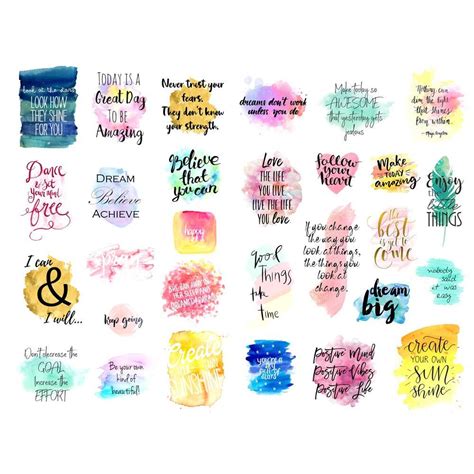 Look at the stars
LOOK HOW
THEY SHINE
FOR YOU
TODAY IS A
Great Day
TO BE
Amazing
Never trust your
fears.
They don't know
your strength.
dreams don't work
unless you do
Make today so
AWESOME
that yesterday gets
jealous
Nothing can
dim the light
that shines
from within
Dance
& set
your soul
free
DREAM
Believe
ACHIEVE
Believe
that you
can
LOVE
THE LIFE
YOU LIVE
LIVE THE LIFE
YOU love
follow
your
heart
Make
TODAY
amazing
Enjoy
the
little
THINGS
happy
the
best
is yet to
come
I can
&
I will...
Keep going
good
THINGS
take
TIME
If you change
the way you
look at things,
the things you
look at
change.
dream
big
nobody
said it
was easy
Don't decrease the
GOAL
Increase the
EFFORT
Be your own
kind of
beautiful!
Create
your own
SUNSHINE
Positive Mind
Positive Vibes
Positive Life
create
YOUR OWN
sun
shine